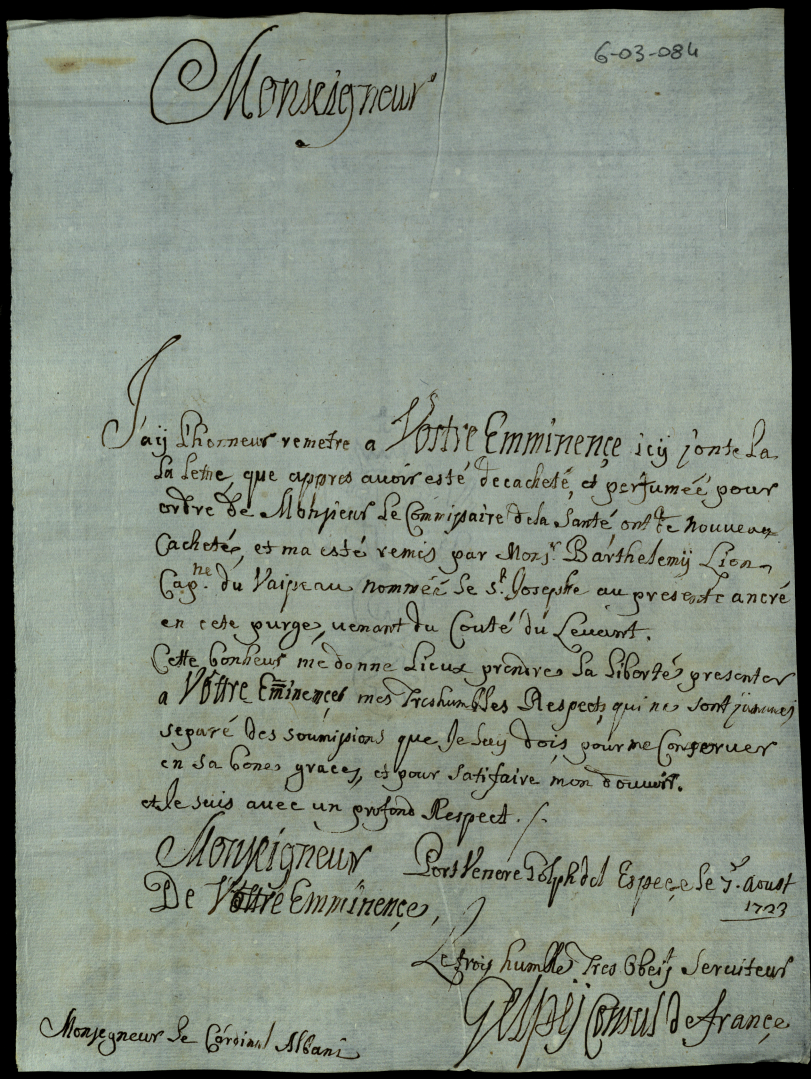 6-03-084
Monseigneur
J'aÿ L'honneur remetre a Vostre Emminençe icÿ jonte La
La Letre, que appres avoir esté decacheté, et perfumeé pour
ordre de Monsieur Le Commissaire de la Santé ont de nouveau
Cacheté, et ma esté remis par Monsr. Barthelemÿ Lion
Capne. du Vaiseau nommeé Le St. Josephe au presente ancré
en cete purge, venant du Couté du Levant.
Cette bonheur me donne Lieux prendre La Liberté presenter
a Vottre Emminençes mes Treshumbles Respects, qui ne sont jammes
separé des soumissions que Je luy dois, pour me Conserver
en sa bones graces, et pour satifaire mon douvoir.
et Je suis avec un profond Respect. /.
Monseigneur
Port Venere Golph del Espeçe le 7. Aoust
1723
De Vottre Emminençe,
Le trois humble Tres Obeit Serviteur
Gespÿ Consul de françe
Monsegneur Le Cardinal Albani